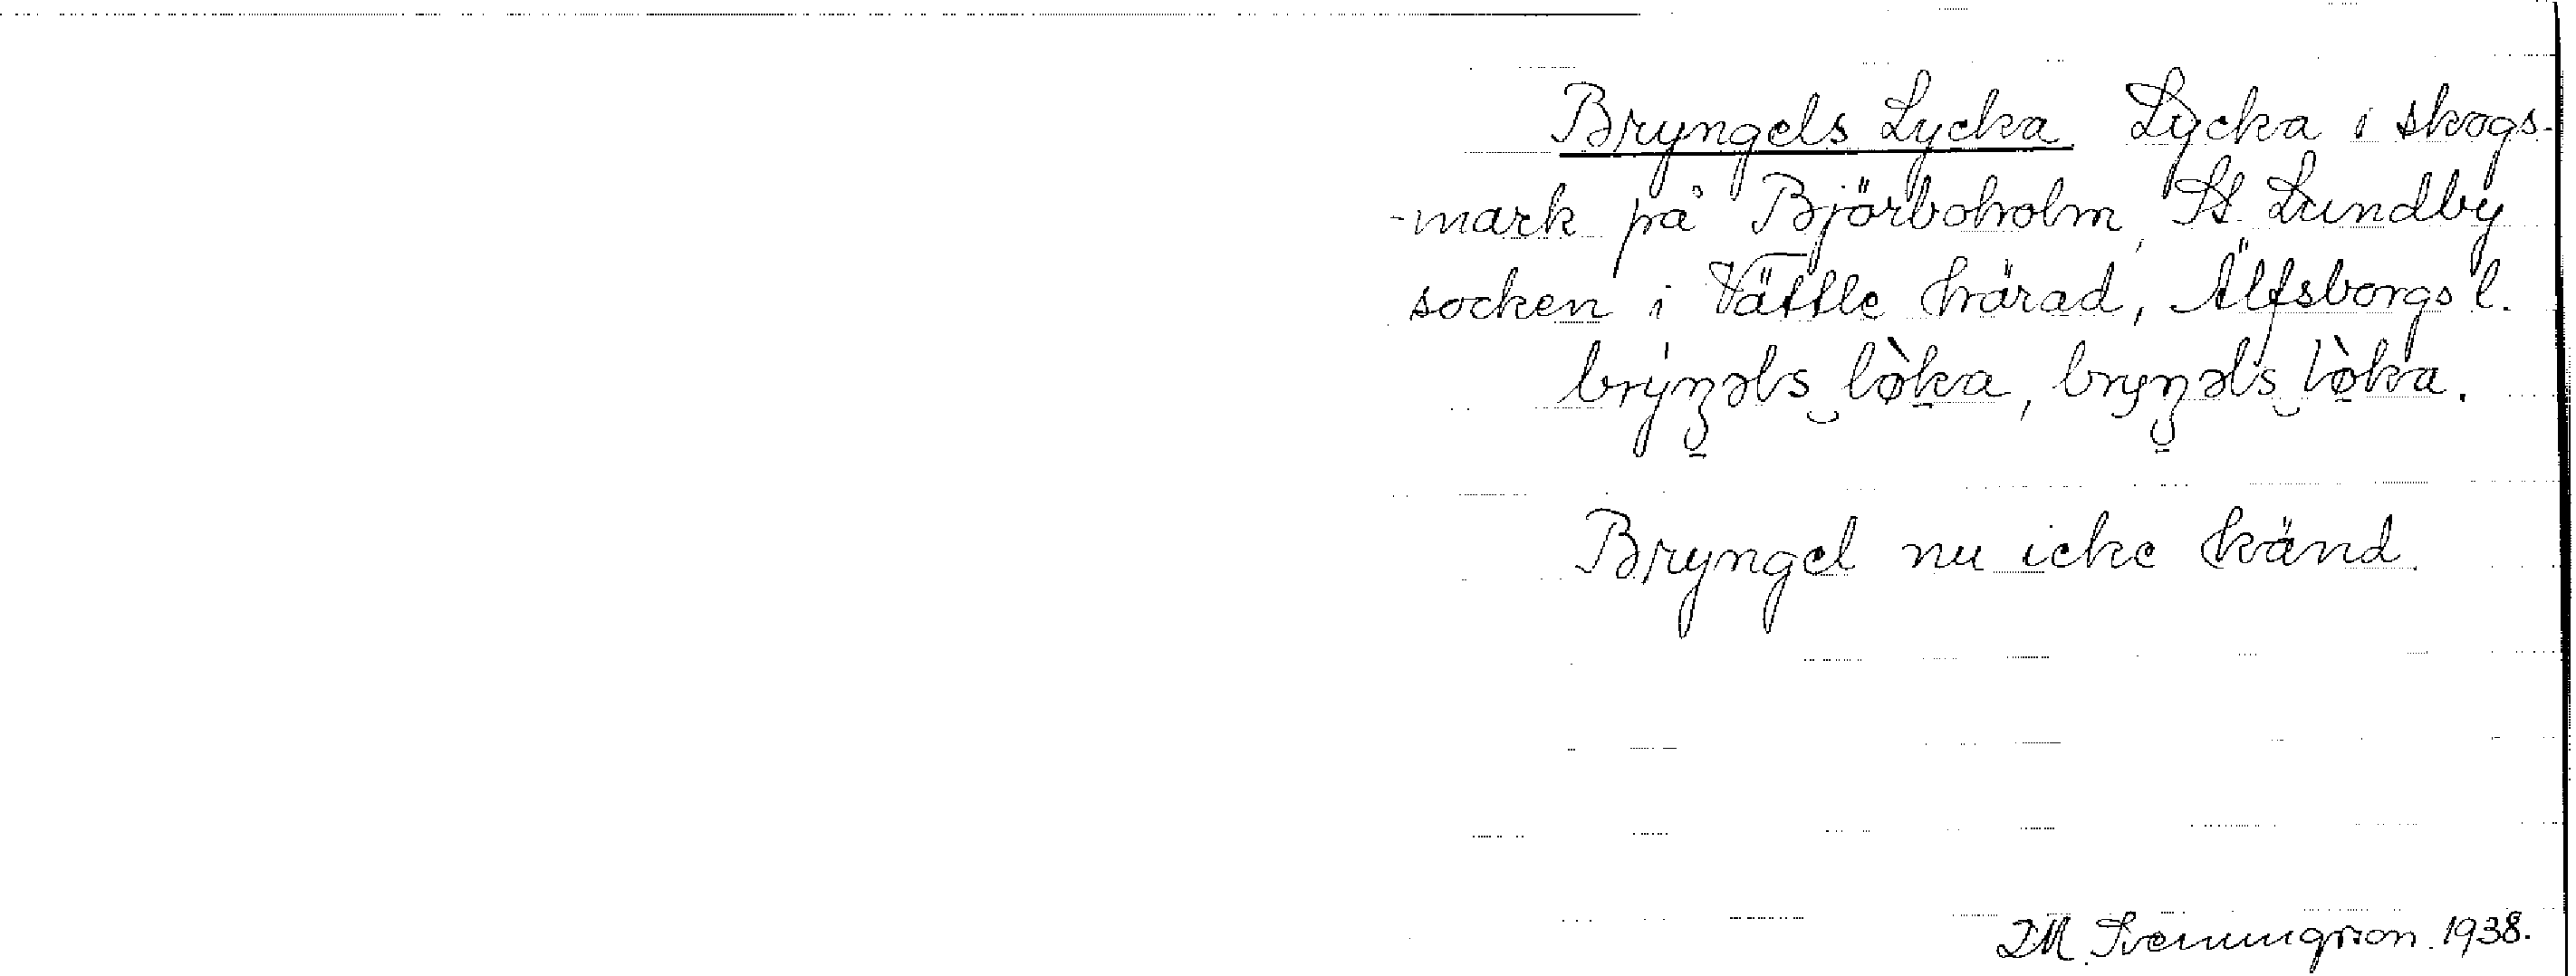 Bryngels Lycka. Lycka i skogs-
-mark på Björboholm, St. Lundby
socken i Vättle härad, Älfsborgs l.
brýŋəls‿lø̀ka, bryŋəls‿lø̀ka.
Bryngel nu icke känd.
D.M. Sveningsson. 1938.